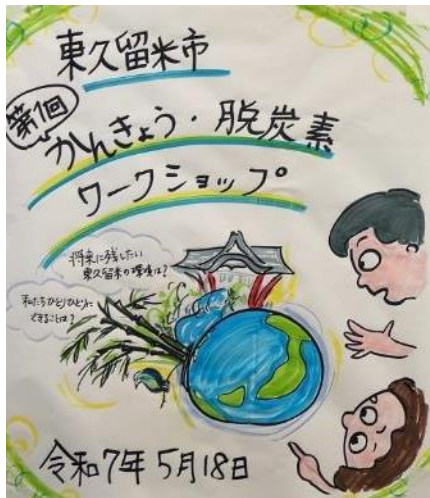 東久留米市
第1回
かんきょう・脱炭素
ワークショップ
将来に残したい
東久留米の環境は？
私たちひとりひとりに
できることは？
令和7年5月18日